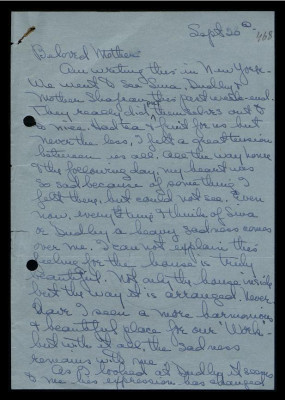 Sept 20th
468
Beloved Mother
Am writing this in New York.
We went to see Sina, Dudley &
Mother Shafrau this past week-end.
They really did themselves out to
be nice. Had tea & fruit for us but
never the less, I felt a great tension
between us all. All the way home
& the following day, my heart was
so sad because of something I
felt there, but could not see. Even
now, everytime I think of Sina
or Dudley a heavy sadness comes
over me. I can not explain this
feeling for the house is truly
beautiful. Not only the house inside
but the way it is arranged. Never
have I seen a more harmonious
& beautiful place for our "Work"-
but with it all the sadness
remains with me.
As I looked at Dudley it seems
to me his expression has changed